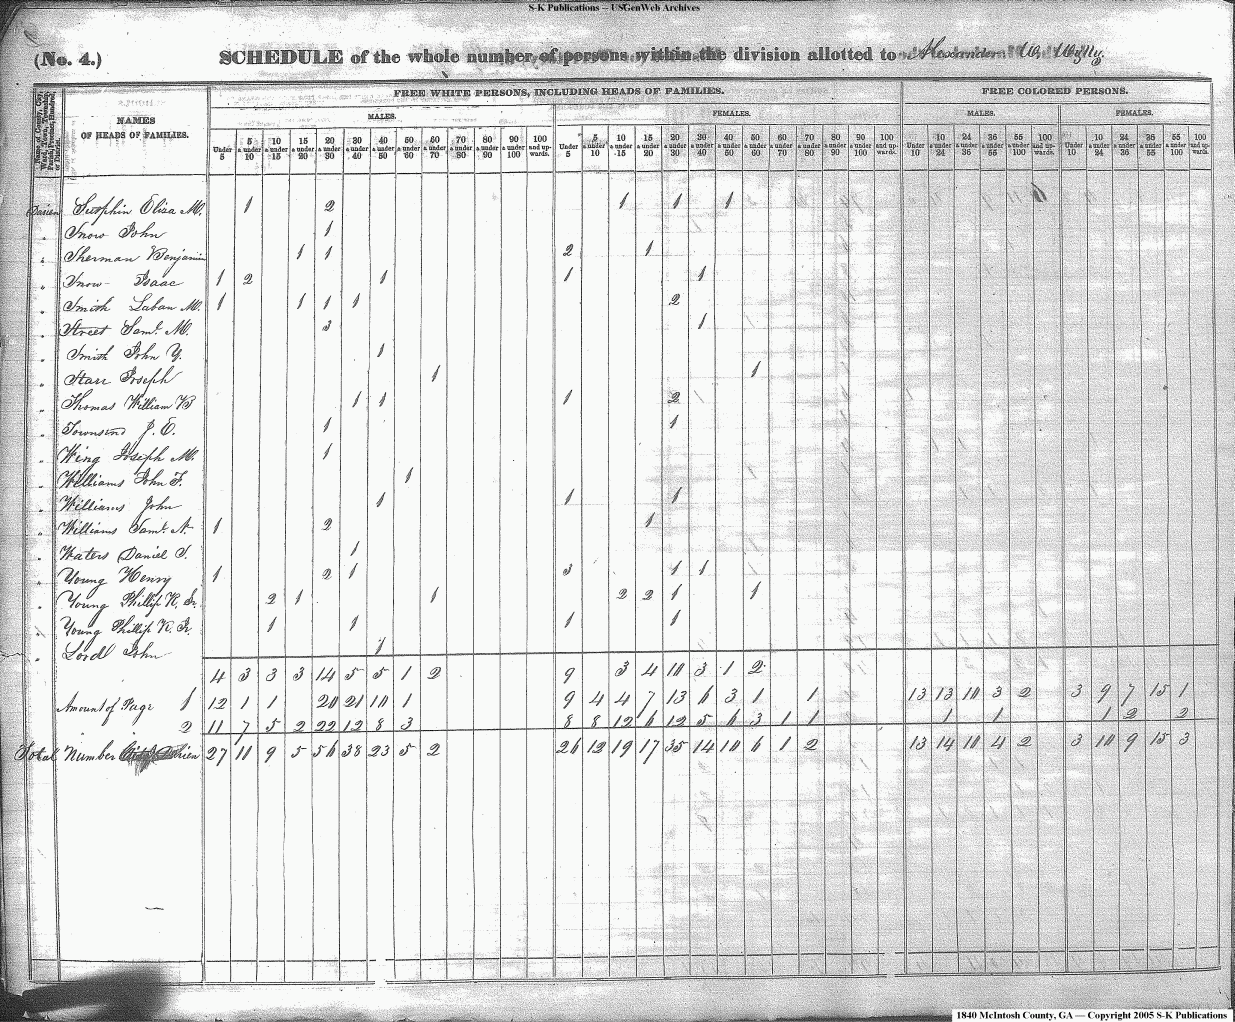 S-K Publications – USGenWeb Archives
(No. 4.) SCHEDULE of the whole number of persons within the division allotted to Alexander W. Wylly
Name of County, City, Ward, Town, Township, Parish, Precinct, Hundred, or District.
NAMES OF HEADS OF FAMILIES.
FREE WHITE PERSONS, INCLUDING HEADS OF FAMILIES. FREE COLORED PERSONS.
MALES. FEMALES. MALES. FEMALES.
Under 5 5 & under 10 10 & under 15 15 & under 20 20 & under 30 30 & under 40 40 & under 50 50 & under 60 60 & under 70 70 & under 80 80 & under 90 90 & under 100 100 and upwards. Under 5 5 & under 10 10 & under 15 15 & under 20 20 & under 30 30 & under 40 40 & under 50 50 & under 60 60 & under 70 70 & under 80 80 & under 90 90 & under 100 100 and upwards. Under 10 10 & under 24 24 & under 36 36 & under 55 55 & under 100 100 and upwards. Under 10 10 & under 24 24 & under 36 36 & under 55 55 & under 100 100 and upwards.
Darien Sutphin Eliza M. 1 2 1 1 1
" Snow John 1
" Sherman Benjamin 1 1 2 1
" Snow Isaac 1 2 1 1 1
" Smith Laban M. 1 1 1 1 2
" Street Saml. M. 3 1
" Smith John Y. 1
" Starr Joseph 1 1
" Thomas William B 1 1 1 2
" Townsend J. E. 1 1
" Wing Joseph M. 1
" Williams John F. 1
" Williams John 1 1 1
" Williams Saml. N. 1 2 1
" Waters Daniel S. 1
" Young Henry 1 2 1 3 1 1
" Young Phillip R. Sr. 2 1 1 2 2 1 1
" Young Phillip R. Jr. 1 1 1 1
" Lordl John 1
4 3 3 3 14 5 5 1 2 9 3 4 10 3 1 2
Amount of Page 1 12 1 1 20 21 10 1 9 4 4 7 13 6 3 1 1 13 13 10 3 2 3 9 7 15 1
2 11 7 5 2 22 12 8 3 8 8 12 6 12 5 6 3 1 1 1 1 1 2 2
Total Number Darien 27 11 9 5 56 38 23 5 2 26 12 19 17 35 14 10 6 1 2 13 14 10 4 2 3 10 9 15 3
1840 McIntosh County, GA — Copyright 2005 S-K Publications